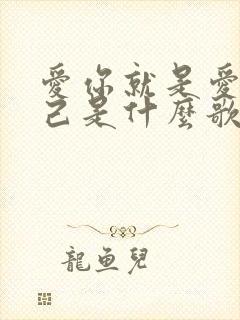 愛你就是愛
己是什麼歌
龍魚兒